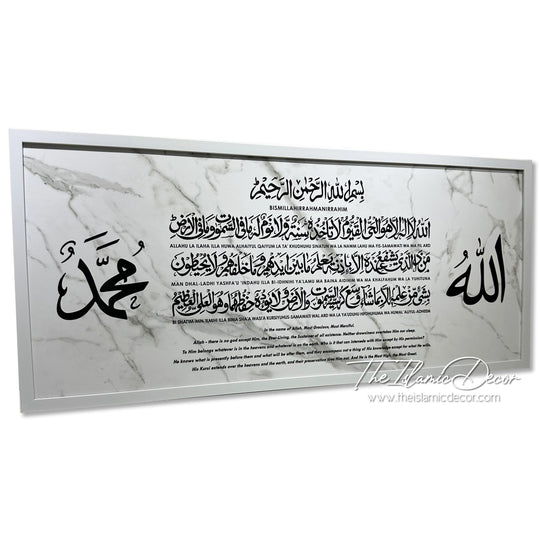 بِسْمِ اللهِ الرَّحْمٰنِ الرَّحِيْمِ
BISMILLAHIRRAHMANIRRAHIM
اللهُ لَا إِلٰهَ إِلَّا هُوَ الْحَيُّ الْقَيُّوْمُ لَا تَأْخُذُهُ سِنَةٌ وَلَا نَوْمٌ لَهُ مَا فِي السَّمٰوٰتِ وَمَا فِي الْأَرْضِ
ALLAHU LA ILAHA ILLA HUWA ALHAIYUL QAIYUM LA TA' KHUDHUHU SINATUN WA LA NAWM LAHU MA FIS-SAMAWAT WA MA FIL ARD
مَنْ ذَا الَّذِيْ يَشْفَعُ عِنْدَهُ إِلَّا بِإِذْنِهِ يَعْلَمُ مَا بَيْنَ أَيْدِيْهِمْ وَمَا خَلْفَهُمْ وَلَا يُحِيْطُوْنَ
MAN DHAL-LADHI YASHFA'U 'INDAHU ILLA BI-IDHNIHI YA'LAMU MA BAINA AIDIHIM WA MA KHALFAHUM WA LA YUHITUNA
بِشَيْءٍ مِنْ عِلْمِهِ إِلَّا بِمَا شَاءَ وَسِعَ كُرْسِيُّهُ السَّمٰوٰتِ وَالْأَرْضَ وَلَا يَئُوْدُهُ حِفْظُهُمَا وَهُوَ الْعَلِيُّ الْعَظِيْمُ
BI SHAI'IM MIN 'ILMIHI ILLA BIMA SHA'A WASI'A KURSIYUHUS-SAMAWATI WAL ARD WA LA YA'UDUHU HIFDHUHUMA WA HUWAL ALIYUL-ADHEEM
In the name of Allah, Most Gracious, Most Merciful.
Allah - there is no god except Him, the Ever-Living, the Sustainer of all existence. Neither drowsiness overtakes Him nor sleep.
To Him belongs whatever is in the heavens and whatever is on the earth. Who is it that can intercede with Him except by His permission?
He knows what is presently before them and what will be after them, and they encompass not a thing of His knowledge except for what He wills.
His Kursi extends over the heavens and the earth, and their preservation tires Him not. And He is the Most High, the Most Great.
الله
محمد
The Islamic Decor
www.theislamicdecor.com